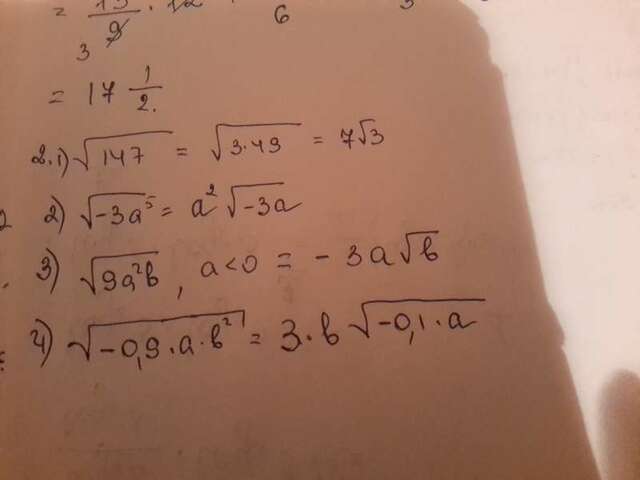 = 13/9 · 12
3 6
= 17 1/2.
2.1) √147 = √3·49 = 7√3
2) √-3a⁵ = a² √-3a
3) √9a²b, a<0 = - 3a√b
4) √-0,9·a·b² = 3·b √-0,1·a